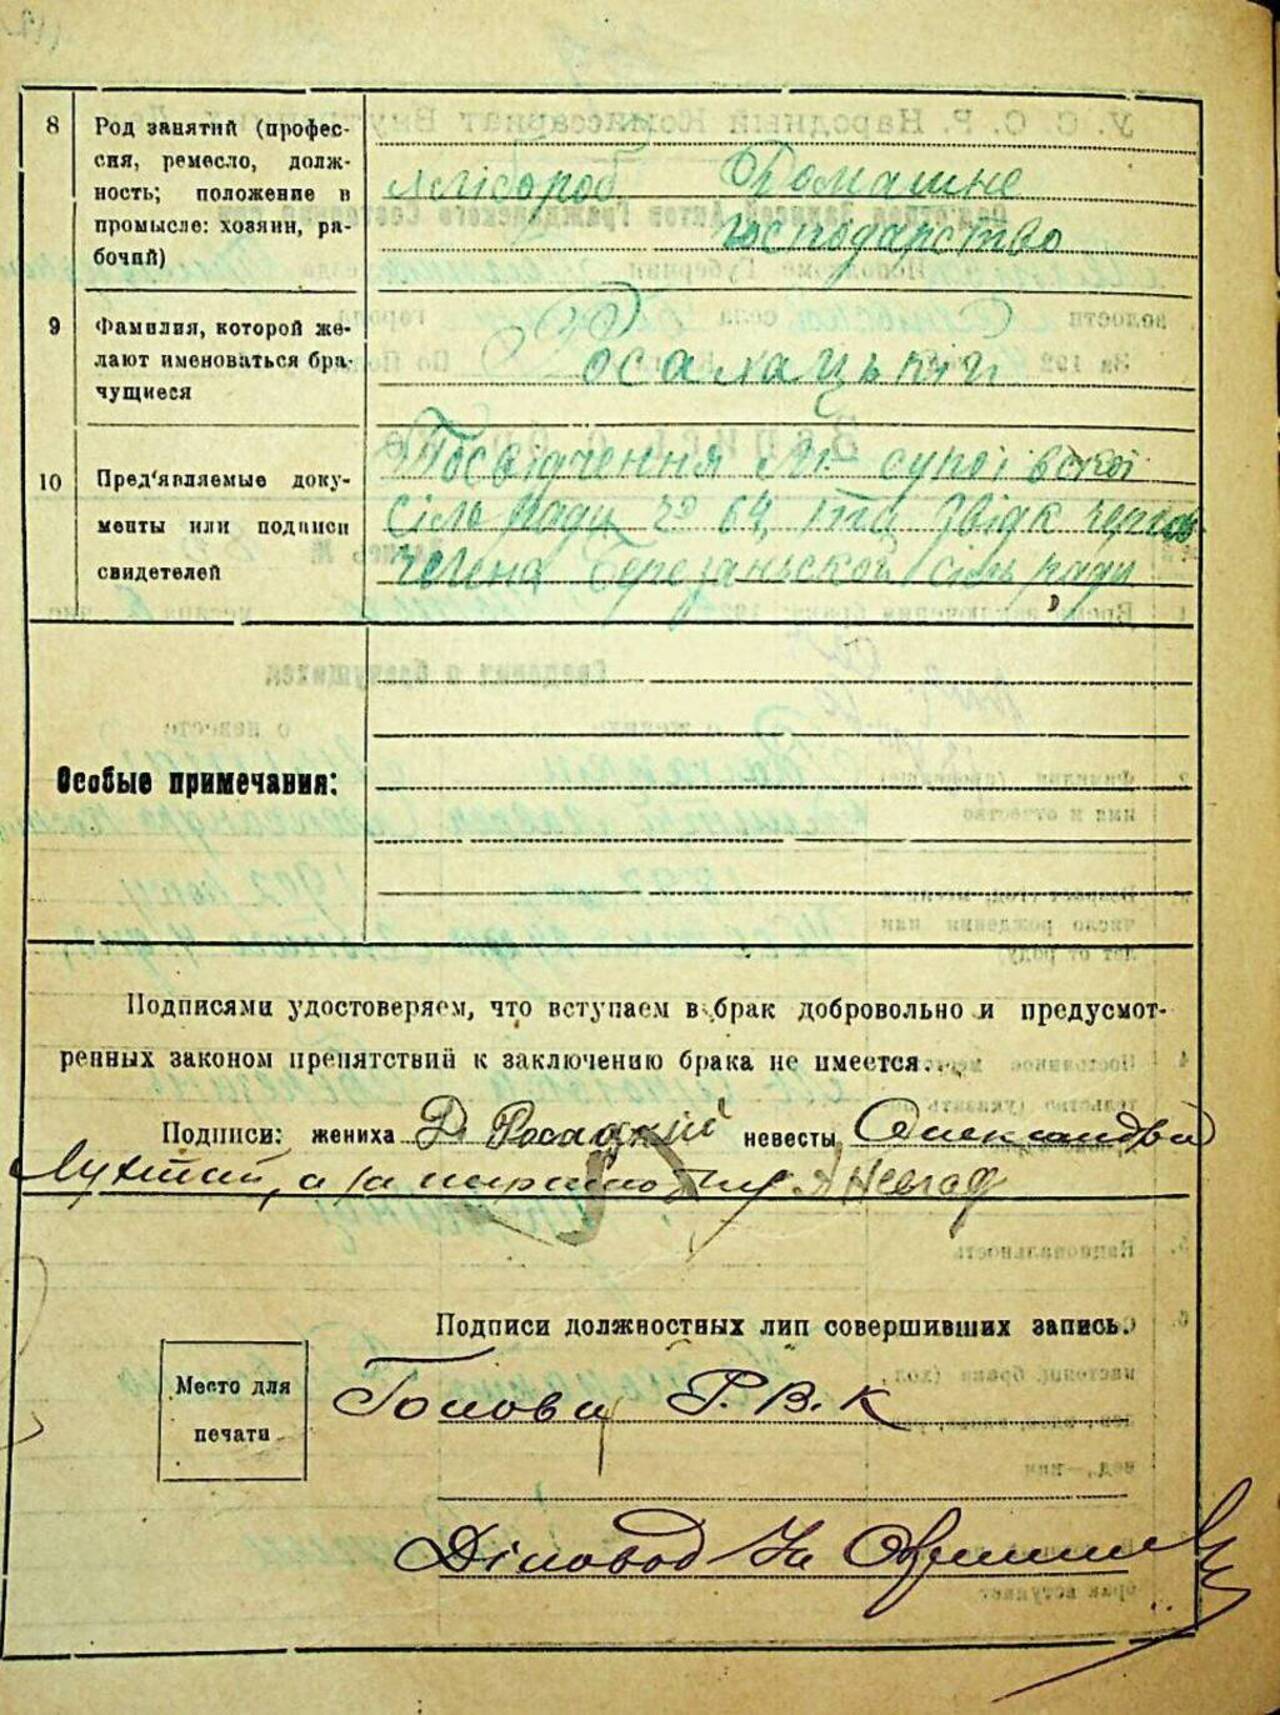 8 Род занятий (профес-
сия, ремесло, долж-
ность; положение в
промысле: хозяин, ра-
бочий)
Хлібороб Домашне
господарство
9 Фамилия, которой же-
лают именоваться бра-
чущиеся
Росалацький
10 Пред'являемые доку-
менты или подписи
свидетелей
Посвідчення
сіль ради № 64,
члена Березаньської сіль ради
Особые примечания:
Подписями удостоверяем, что вступаем в брак добровольно и предусмот-
ренных законом препятствий к заключению брака не имеется.
Подписи: жениха Д невесты Олександра
а за неграмотну
Подписи должностных лиц совершивших запись.
Место для
печати
Голова Р.В.К
Діловод